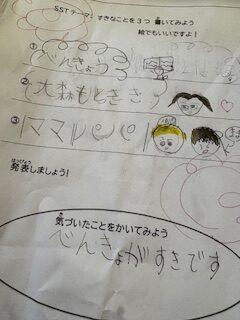 SSTテーマ:すきなことを3つ書いてみよう
絵でもいいですよ!
① べんきょう
② 大森もときき
③ ママ
はっぴょう
発表しましょう!
気づいたことをかいてみよう
べんきょがすきです